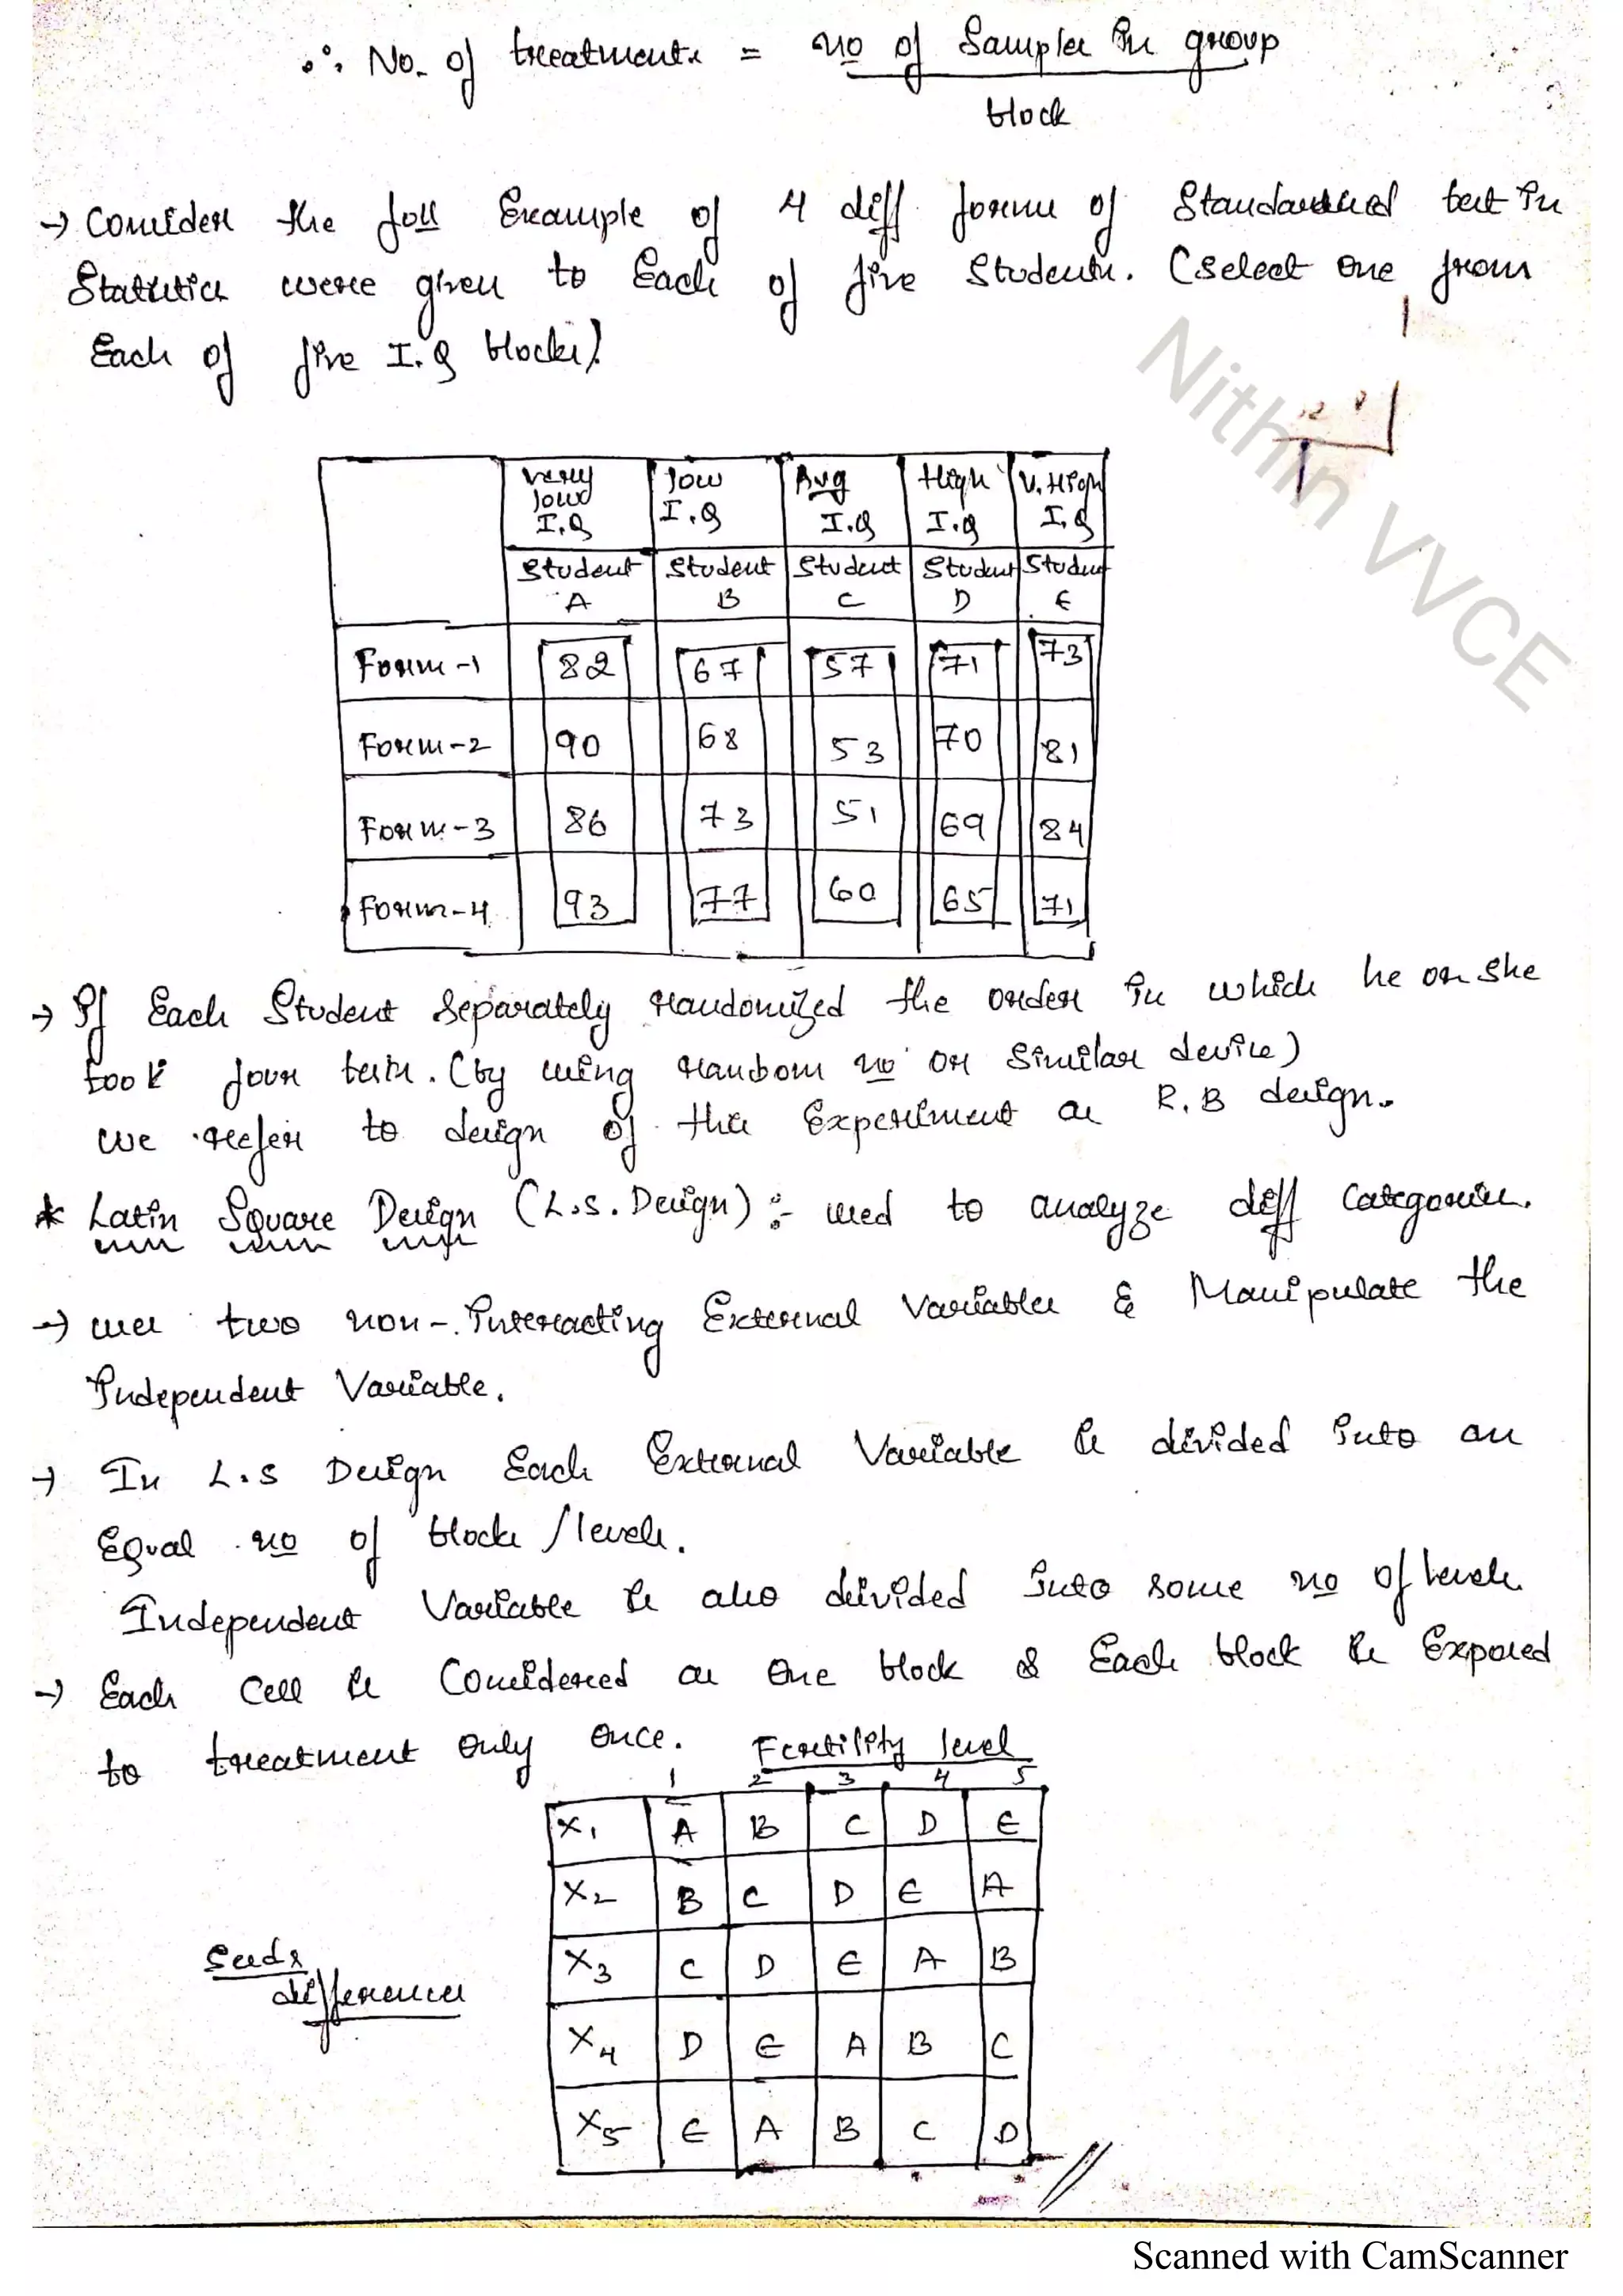 ∴ No. of treatments = no of Samples in group
block
→ Consider the foll Example of 4 diff forms of Standardised test in
Statistics were given to Each of five Students. (select one from
Each of five I.Q blocks).
Very low I.Q | low I.Q | Avg I.Q | High I.Q | V. High I.Q
Student A | Student B | Student C | Student D | Student E
Form-1 | 82 | 67 | 57 | 71 | 73
Form-2 | 90 | 68 | 53 | 70 | 81
Form-3 | 86 | 73 | 51 | 69 | 84
Form-4 | 93 | 77 | 60 | 65 | 71
→ If Each Student separately randomized the order in which he or she
took four tests. (by using random no or similar device)
we refer to design of this Experiment as R.B design.
* Latin Square Design (L.S. Design) :- used to analyze diff Categories.
→ uses two non-Interacting External Variables & Manipulate the
Independent Variable.
→ In L.S Design Each External Variable is divided into an
Equal no of blocks / levels.
Independent Variable is also divided into some no of levels
→ Each Cell is Considered as One block & Each block is Exposed
to treatment only once.
Fertility level
1 2 3 4 5
X1 | A | B | C | D | E
X2 | B | C | D | E | A
X3 | C | D | E | A | B
X4 | D | E | A | B | C
X5 | E | A | B | C | D
Seeds
differences
Nithin VVCE
Scanned with CamScanner